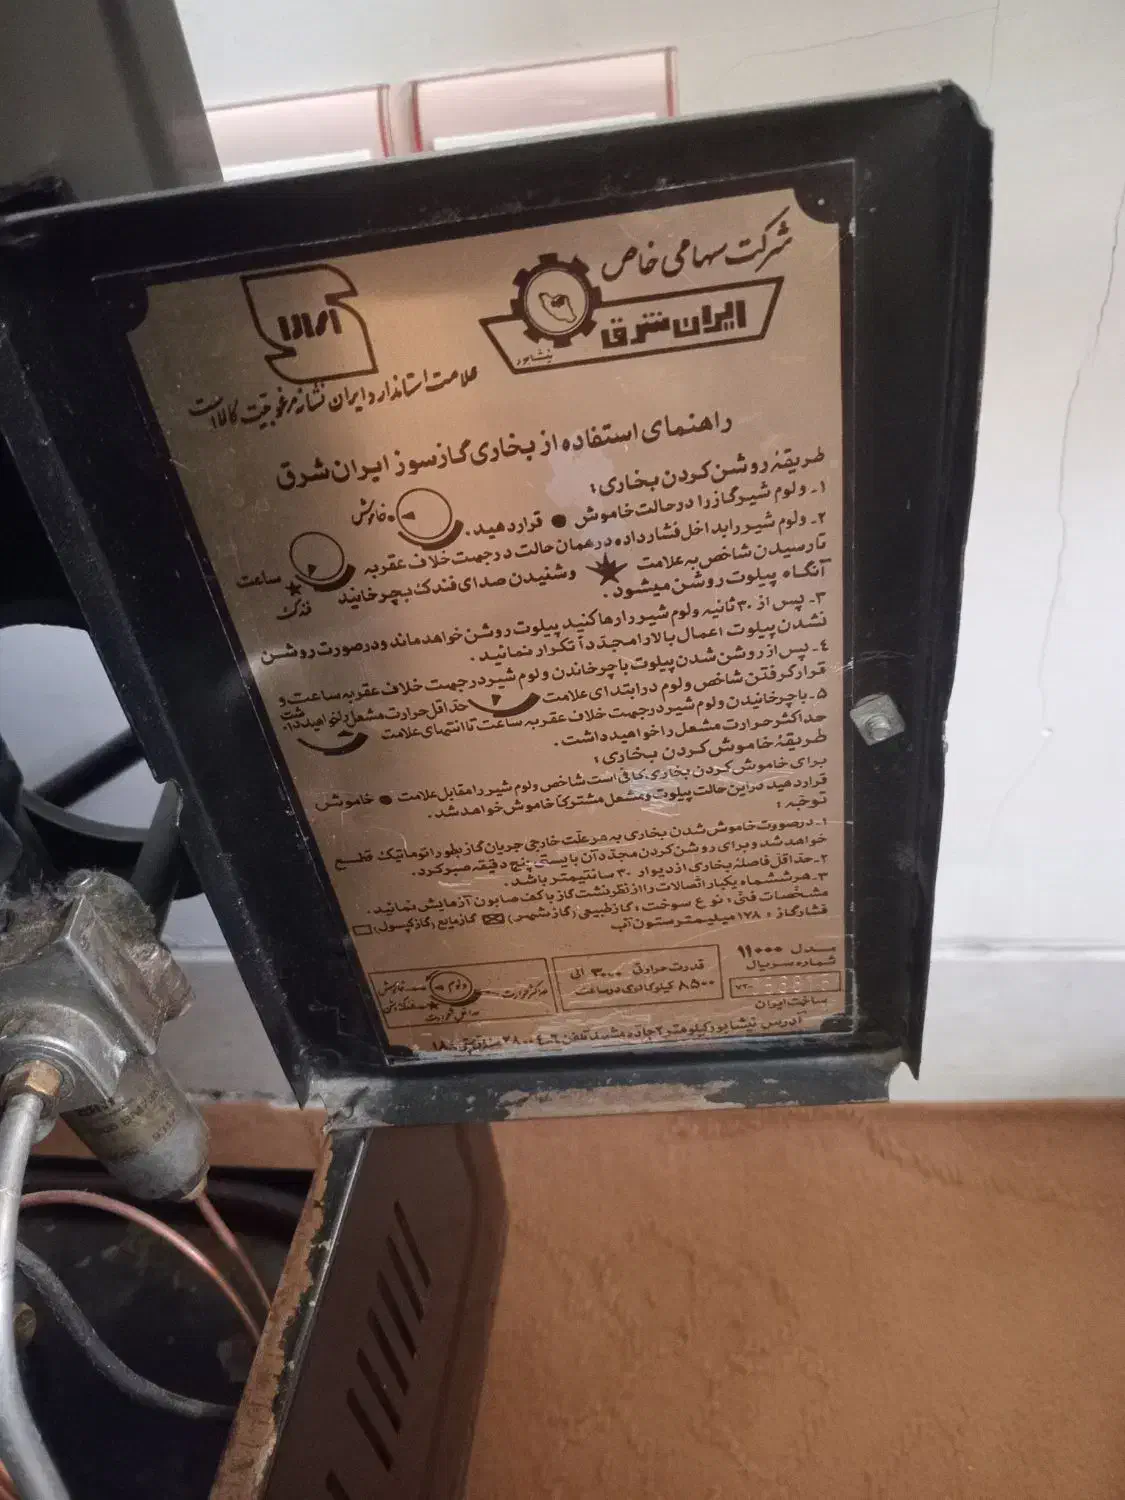 شرکت سهامی خاص
ایران شرق
نیشابور
علامت استاندارد ایران نشانه مرغوبیت کالا است
راهنمای استفاده از بخاری گازسوز ایران شرق
طریقه روشن کردن بخاری:
۱- ولوم شیر گاز را در حالت خاموش ● قرار دهید. خاموش
۲- ولوم شیر را بداخل فشار داده در همان حالت در جهت خلاف عقربه ساعت
تا رسیدن شاخص به علامت ★ و شنیدن صدای فندک بچرخانید فندک
آنگاه پیلوت روشن میشود.
۳- پس از ۳۰ ثانیه ولوم شیر را رها کنید پیلوت روشن خواهد ماند و در صورت روشن
نشدن پیلوت اعمال بالا را مجدداً تکرار نمائید.
۴- پس از روشن شدن پیلوت با چرخاندن ولوم شیر در جهت خلاف عقربه ساعت و
قرار گرفتن شاخص ولوم در ابتدای علامت حداقل حرارت مشعل را خواهید داشت.
۵- با چرخانیدن ولوم شیر در جهت خلاف عقربه ساعت تا انتهای علامت
حداکثر حرارت مشعل را خواهید داشت.
طریقه خاموش کردن بخاری:
برای خاموش کردن بخاری کافی است شاخص ولوم شیر را مقابل علامت ● خاموش
قرار دهید در این حالت پیلوت و مشعل مشترکا خاموش خواهد شد.
توجه:
۱- در صورت خاموش شدن بخاری به هر علت خارجی جریان گاز بطور اتوماتیک قطع
خواهد شد و برای روشن کردن مجدد آن بایستی پنج دقیقه صبر کرد.
۲- حداقل فاصله بخاری از دیوار ۳۰ سانتیمتر باشد.
۳- هر ششماه یکبار اتصالات را از نظر نشت گاز با کف صابون آزمایش نمائید.
مشخصات فنی: نوع سوخت: گاز طبیعی (گاز شهری) ☒ گاز مایع (گاز کپسول) ☐
فشار گاز: ۱۷۸ میلیمتر ستون آب
مدل ۱۱۰۰۰
شماره سریال
ساخت ایران
قدرت حرارتی ۳۰۰۰ الی
۸۵۰۰ کیلوکالری در ساعت
ولوم
خاموش
حداکثر حرارت
حداقل حرارت
آدرس نیشابور کیلومتر ۲ جاده مشهد تلفن